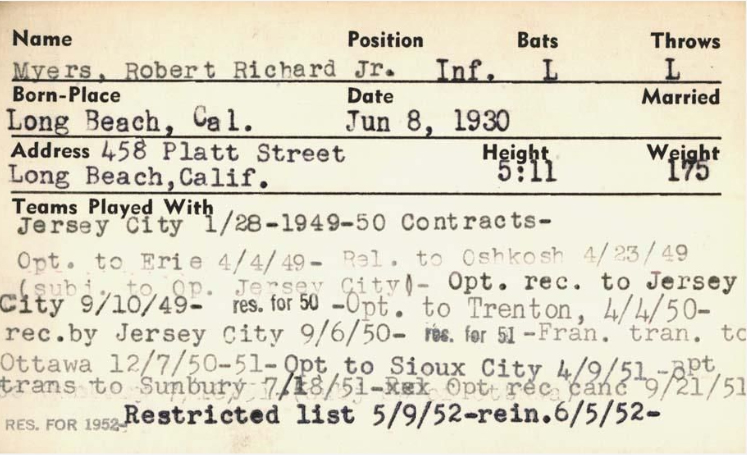 Name Position Bats Throws
Myers, Robert Richard Jr. Inf. L L
Born-Place Date Married
Long Beach, Cal. Jun 8, 1930
Address 458 Platt Street Height Weight
Long Beach,Calif. 5:11 175
Teams Played With
Jersey City 1/28-1949-50 Contracts-
Opt. to Erie 4/4/49- Rel. to Oshkosh 4/23/49
(subj. to Op. Jersey City)- Opt. rec. to Jersey
City 9/10/49- res. for 50 -Opt. to Trenton, 4/4/50-
rec.by Jersey City 9/6/50- res. for 51 -Fran. tran. to
Ottawa 12/7/50-51-Opt to Sioux City 4/9/51 -Opt
trans to Sunbury 7/18/51- Opt rec canc 9/21/51
RES. FOR 1952- Restricted list 5/9/52-rein.6/5/52-